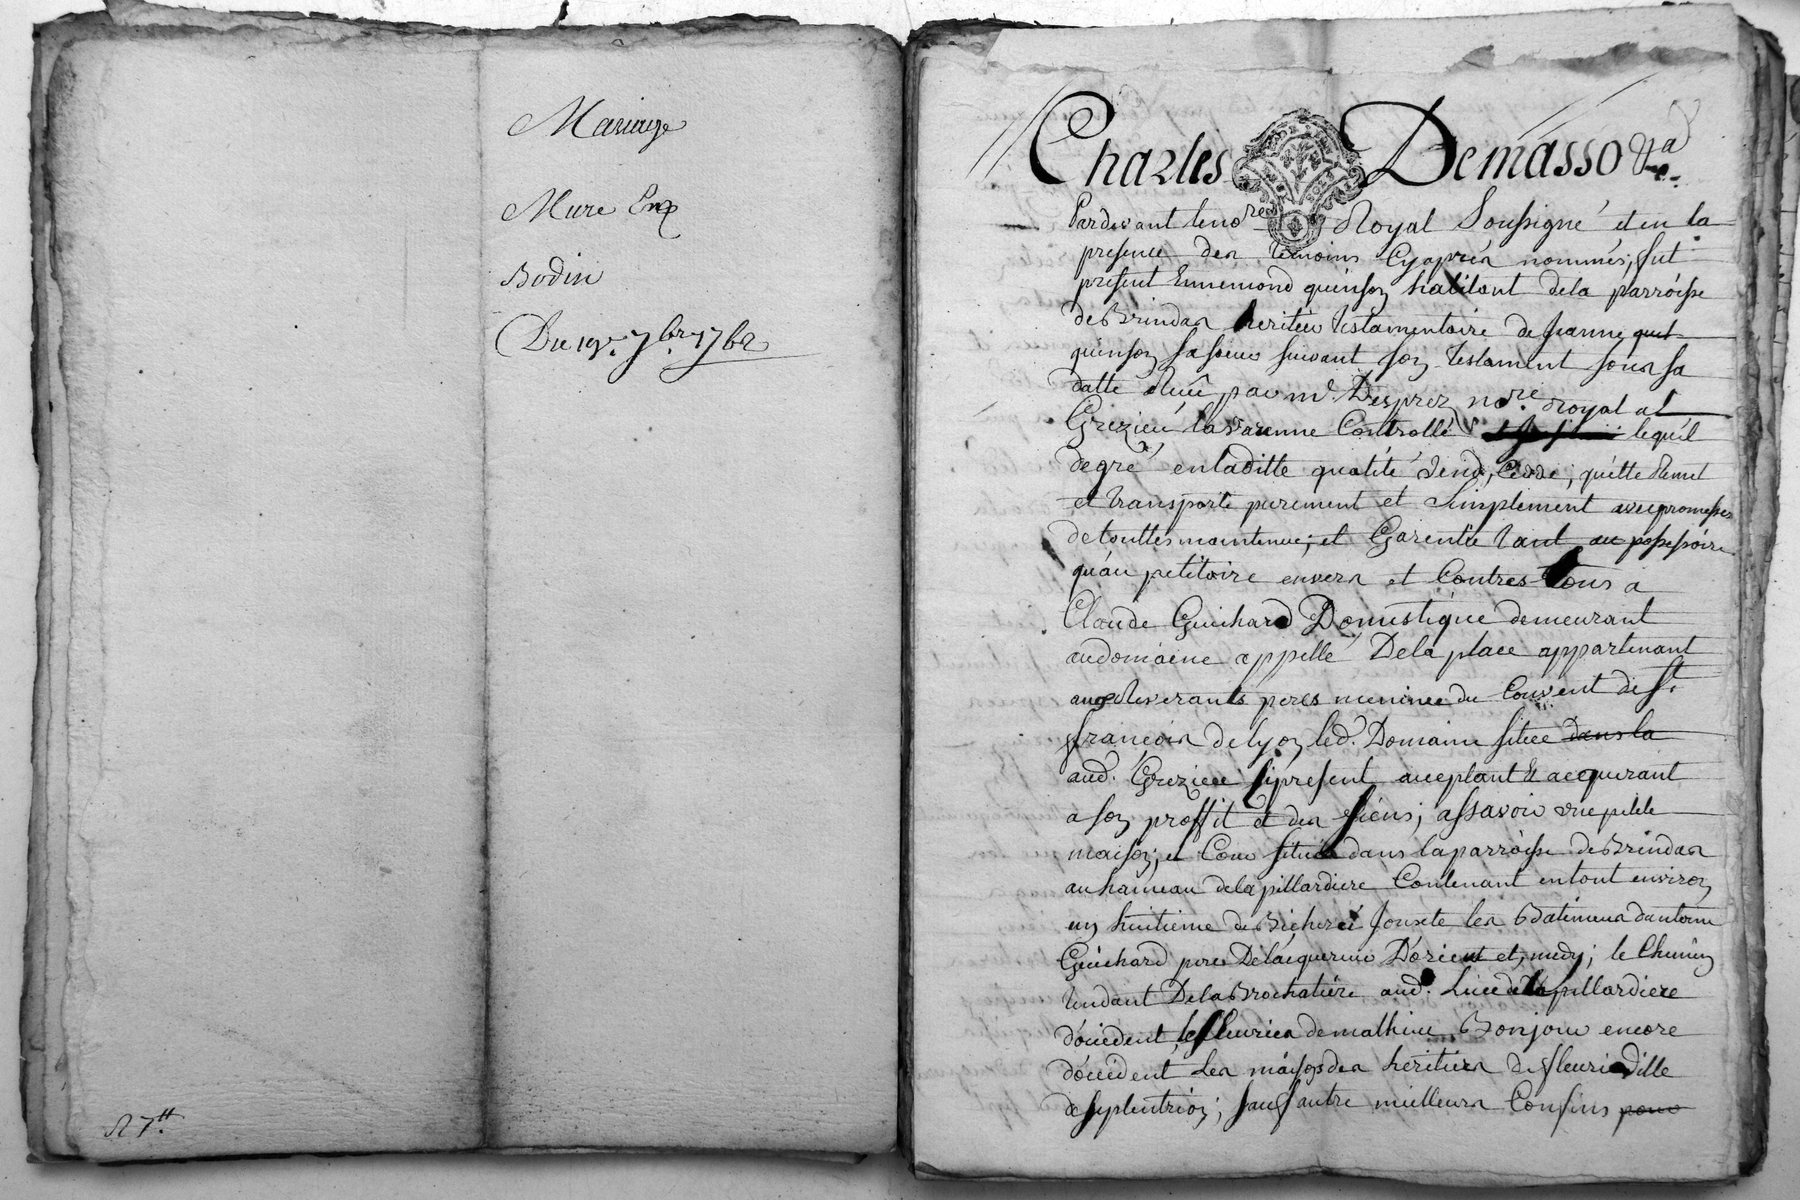 Mariage
Mure Enp
Bodin
Du 19e. 7bre 1762
R 7tt
Charles Demasso &a
Pardevant le nore Royal Soussigné et en la
presence des temoins Cyaprés nommés, fut
present Ennemond quinson habitant dela parroisse
de Brindas heritier testamentaire de jeanne
quinson sa soeur suivant son testament sous sa
datte Receu par me. Desprez nore. Royal a
Grezieu lavarenne Controllé lequel
de gré en laditte qualité vend, Cedde, quitte Remet
et transporte purement et Simplement avec promesses
de touttes maintenue, et Garentie tant au possessoire
qu'au petitoire envers et Contres tous a
Claude Guichard Domestique demeurant
au domaine appellé De la place appartenant
aux Reverants peres du Couvent de St.
françois de lyon led. Domaine situé dans la
aud. Grezieu si present acceptant & acquerant
a son proffit et des siens; assavoir une petite
maison, et Cour située dans la parroisse de Brindas
au hameau dela pillardiere Contenant en tout environ
un huitieme de Bicherée Jouxte les Batiments dantoine
Guichard pere De lacquereur D'orient et medy; le Chemin
tendant De la Brochatiere aud. Lieu de la pillardiere
d'occident, les heritiers de mathieu Bonjour encore
d'occident Les maisons des heritiers de fleurie dille
de septentrion; sauf autre meilleurs Confins pour